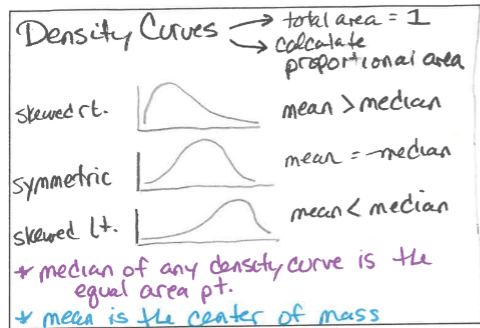 Density Curves → total area = 1
→ calculate
proportional area
skewed rt. mean > median
symmetric mean = median
skewed lt. mean < median
* median of any density curve is the
equal area pt.
* mean is the center of mass